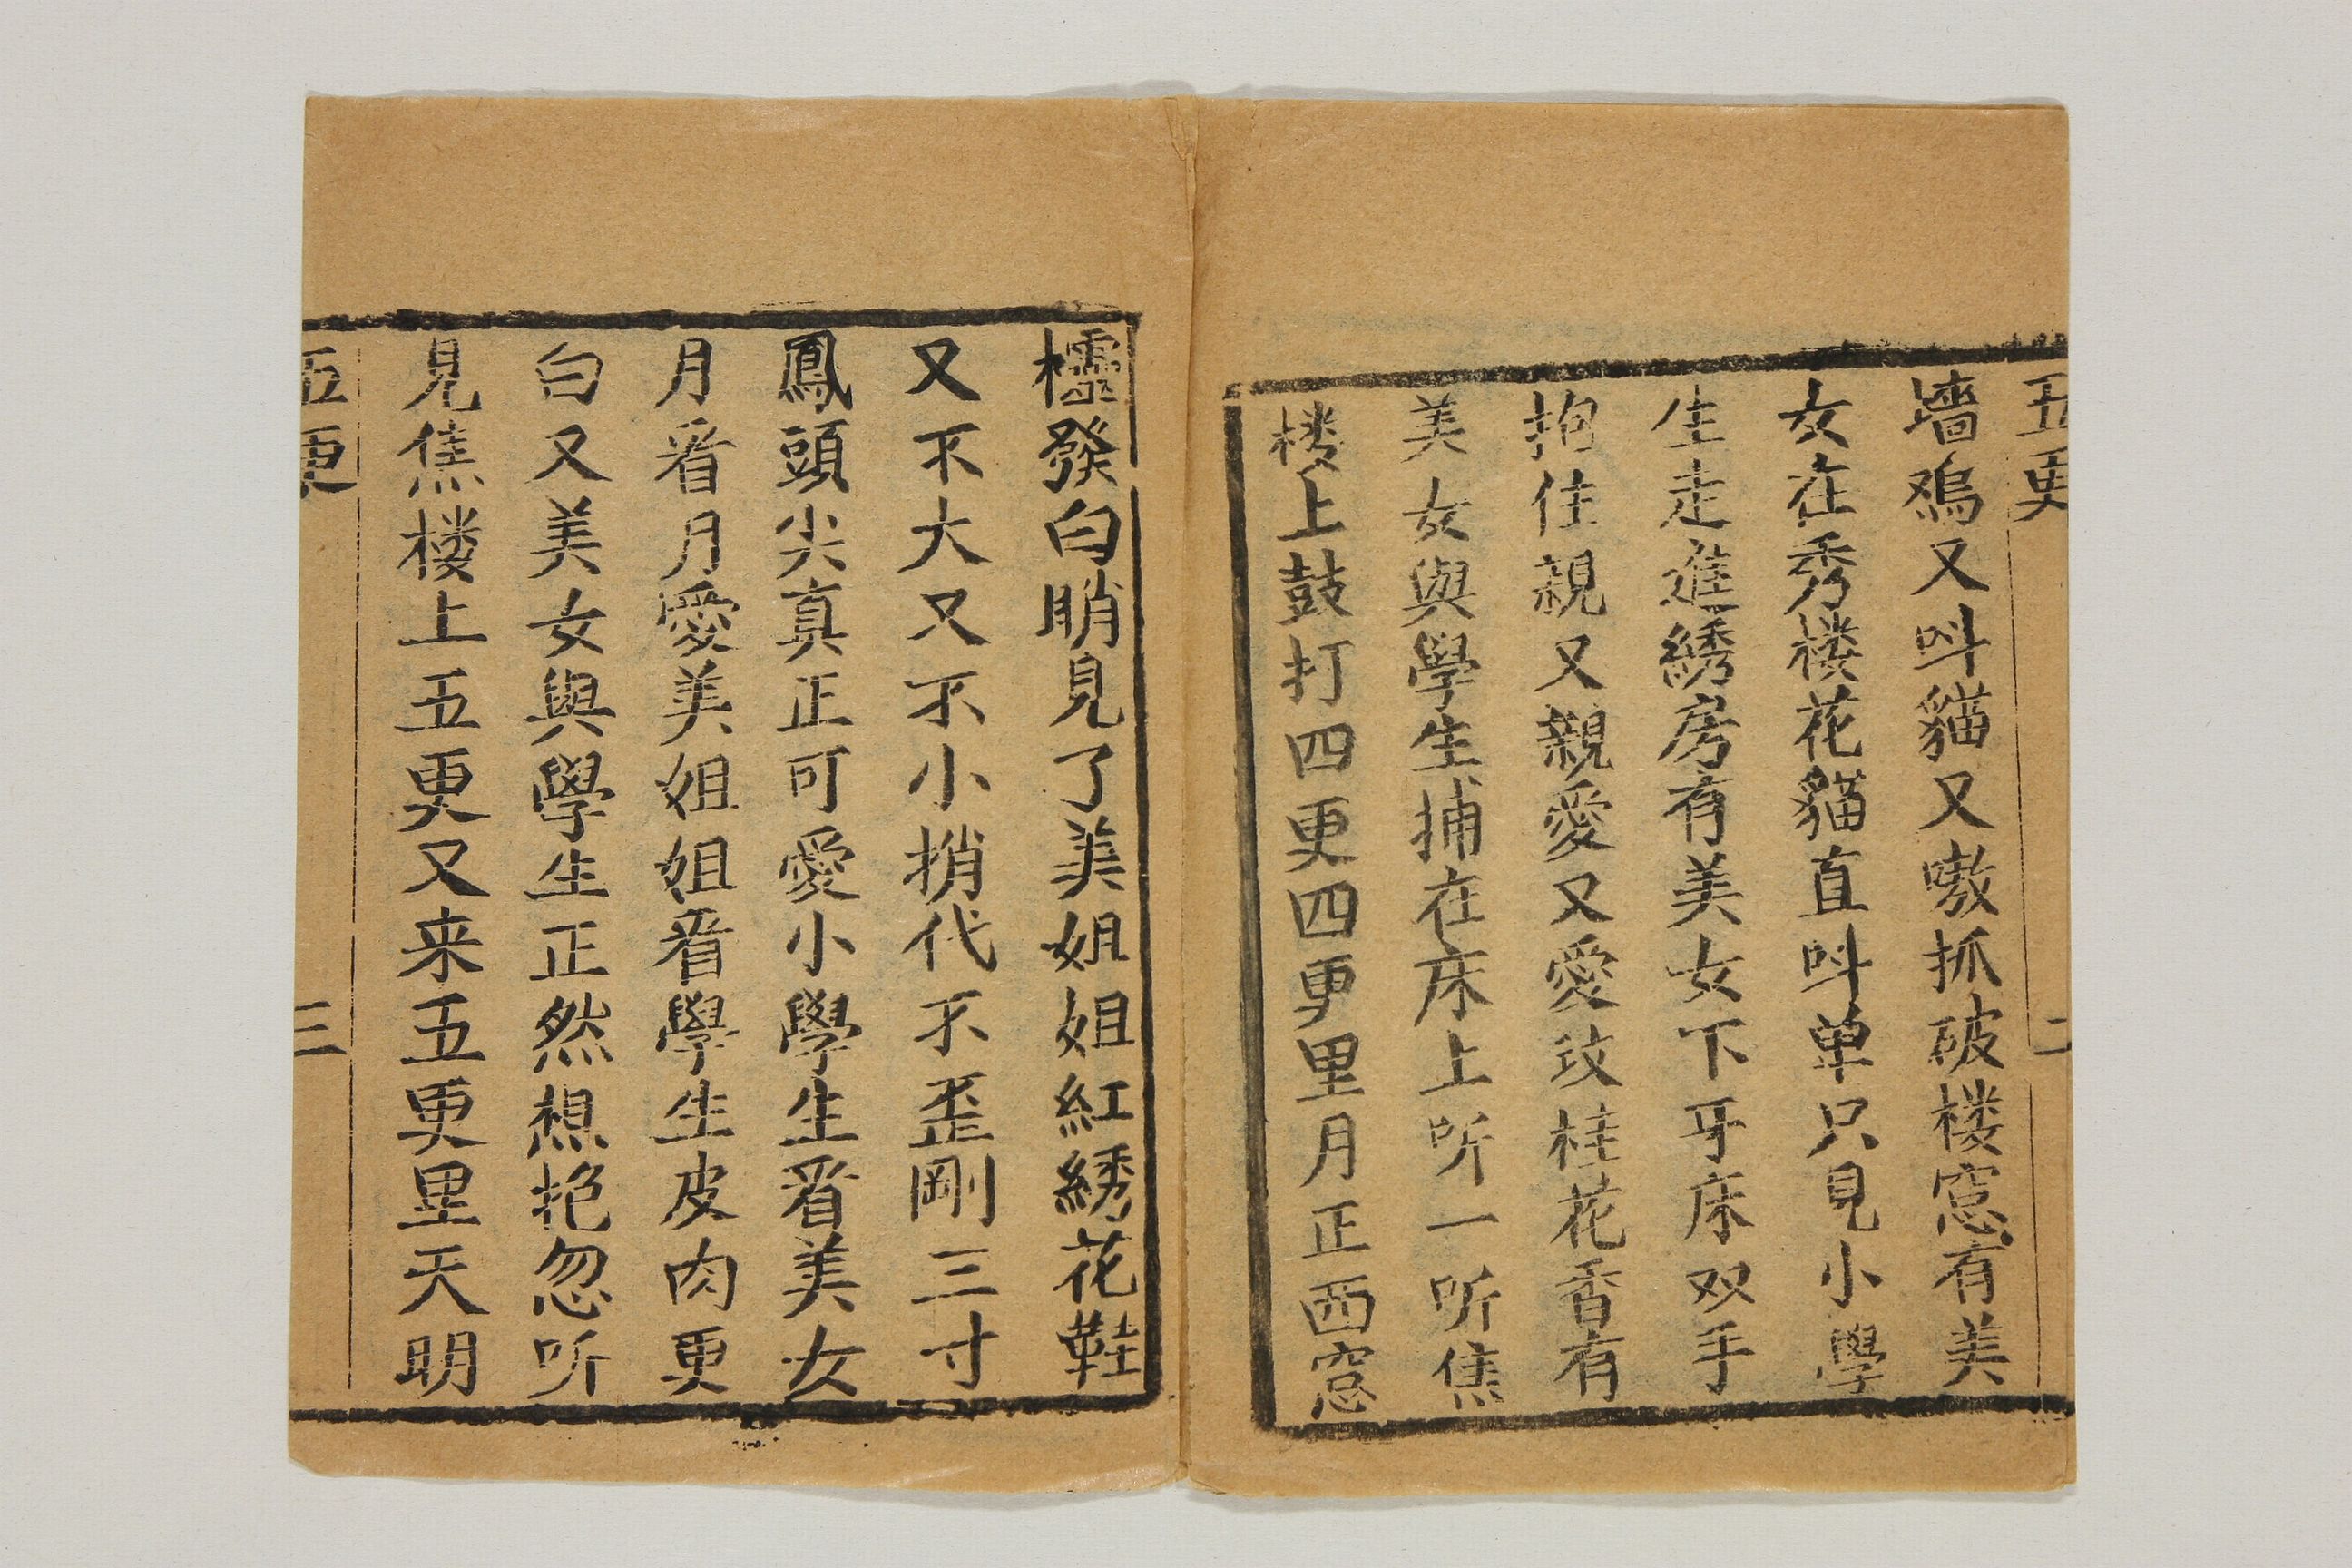 五更 二
墻鴉又呌貓又嗷抓破楼窓有美
女在秀楼花貓直呌单只見小學
生走進綉房有美女下牙床双手
抱住親又親愛又愛玫桂花香有
美女與學生捕在床上听一听焦
楼上鼓打四更四更里月正西窓
櫺發白晭見了美姐姐紅綉花鞋
又不大又不小捎代不歪剛三寸
鳳頭尖真正可愛小學生看美女
月看月愛美姐姐看學生皮肉更
白又美女與學生正然想抱忽听
見焦楼上五更又来五更里天明
五更 三